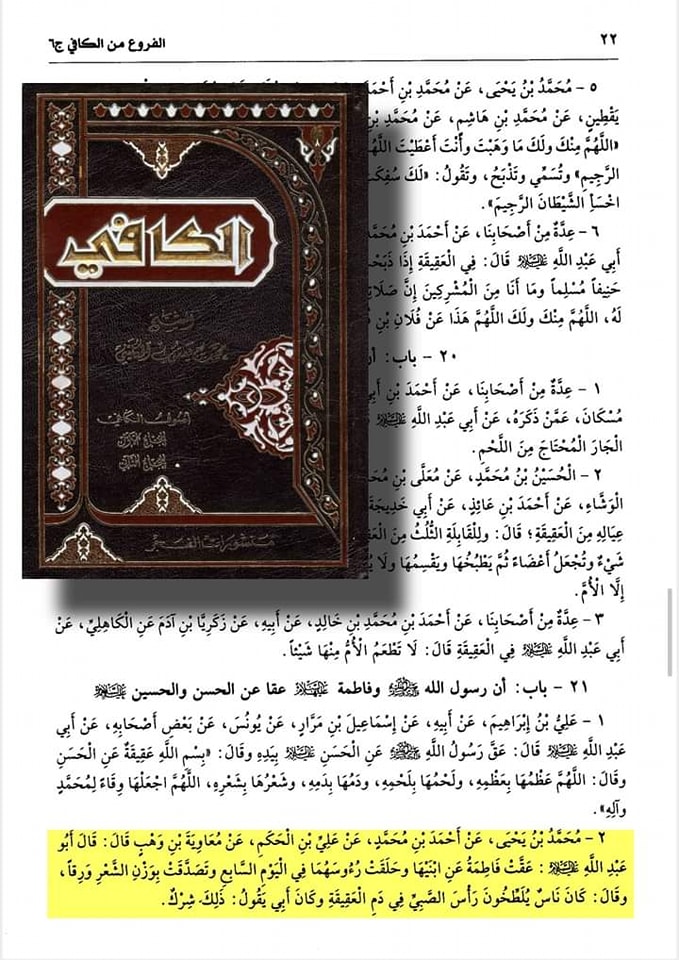 ٢٢
الفروع من الكافي ج٦
٥ - مُحَمَّدُ بْنُ يَحْيَى، عَنْ مُحَمَّدِ بْنِ أَحْمَدَ
يَقْطِينٍ، عَنْ مُحَمَّدِ بْنِ هَاشِمٍ، عَنْ مُحَمَّدِ بْنِ
«اللَّهُمَّ مِنْكَ وَلَكَ مَا وَهَبْتَ وَأَنْتَ أَعْطَيْتَ اللَّهُمَّ
الرَّجِيمِ» وَتُسَمِّي وَتَذْبَحُ، وَتَقُولُ: «لَكَ سُفِكَتِ
اخْسَإِ الشَّيْطَانَ الرَّجِيمَ».
٦ - عِدَّةٌ مِنْ أَصْحَابِنَا، عَنْ أَحْمَدَ بْنِ مُحَمَّدِ
أَبِي عَبْدِ اللَّهِ عليه السلام قَالَ: فِي الْعَقِيقَةِ إِذَا ذَبَحْتَ
حَنِيفاً مُسْلِماً وَمَا أَنَا مِنَ الْمُشْرِكِينَ إِنَّ صَلَاتِي
لَهُ، اللَّهُمَّ مِنْكَ وَلَكَ اللَّهُمَّ هَذَا عَنْ فُلَانِ بْنِ
٢٠ - باب: أن
١ - عِدَّةٌ مِنْ أَصْحَابِنَا، عَنْ أَحْمَدَ بْنِ أَبِي
مُسْكَانَ، عَمَّنْ ذَكَرَهُ، عَنْ أَبِي عَبْدِ اللَّهِ عليه السلام
الْجَارَ الْمُحْتَاجَ مِنَ اللَّحْمِ.
٢ - الْحُسَيْنُ بْنُ مُحَمَّدٍ، عَنْ مُعَلَّى بْنِ مُحَمَّدٍ
الْوَشَّاءِ، عَنْ أَحْمَدَ بْنِ عَائِذٍ، عَنْ أَبِي خَدِيجَةَ
عِيَالِهِ مِنَ الْعَقِيقَةِ؛ قَالَ: وَلِلْقَابِلَةِ الثُّلُثُ مِنَ
شَيْءٌ وَتُجْعَلُ أَعْضَاءً ثُمَّ يَطْبُخُهَا وَيَقْسِمُهَا وَلَا
إِلَّا الْأُمَّ.
٣ - عِدَّةٌ مِنْ أَصْحَابِنَا، عَنْ أَحْمَدَ بْنِ مُحَمَّدِ بْنِ خَالِدٍ، عَنْ أَبِيهِ، عَنْ زَكَرِيَّا بْنِ آدَمَ عَنِ الْكَاهِلِيِّ، عَنْ
أَبِي عَبْدِ اللَّهِ عليه السلام فِي الْعَقِيقَةِ قَالَ: لَا تَطْعَمُ الْأُمُّ مِنْهَا شَيْئاً.
٢١ - باب: أن رسول الله ﷺ وفاطمة عليها السلام عقا عن الحسن والحسين عليهما السلام
١ - عَلِيُّ بْنُ إِبْرَاهِيمَ، عَنْ أَبِيهِ، عَنْ إِسْمَاعِيلَ بْنِ مَرَّارٍ، عَنْ يُونُسَ، عَنْ بَعْضِ أَصْحَابِهِ، عَنْ أَبِي
عَبْدِ اللَّهِ عليه السلام قَالَ: عَقَّ رَسُولُ اللَّهِ ﷺ عَنِ الْحَسَنِ عليه السلام بِيَدِهِ وَقَالَ: «بِسْمِ اللَّهِ عَقِيقَةٌ عَنِ الْحَسَنِ
وَقَالَ: اللَّهُمَّ عَظْمُهَا بِعَظْمِهِ، وَلَحْمُهَا بِلَحْمِهِ، وَدَمُهَا بِدَمِهِ، وَشَعْرُهَا بِشَعْرِهِ، اللَّهُمَّ اجْعَلْهَا وِقَاءً لِمُحَمَّدٍ
وَآلِهِ».
٢ - مُحَمَّدُ بْنُ يَحْيَى، عَنْ أَحْمَدَ بْنِ مُحَمَّدٍ، عَنْ عَلِيِّ بْنِ الْحَكَمِ، عَنْ مُعَاوِيَةَ بْنِ وَهْبٍ قَالَ: قَالَ أَبُو
عَبْدِ اللَّهِ عليه السلام: عَقَّتْ فَاطِمَةُ عَنِ ابْنَيْهَا وَحَلَقَتْ رُءُوسَهُمَا فِي الْيَوْمِ السَّابِعِ وَتَصَدَّقَتْ بِوَزْنِ الشَّعْرِ وَرِقاً،
وَقَالَ: كَانَ نَاسٌ يُلَطِّخُونَ رَأْسَ الصَّبِيِّ فِي دَمِ الْعَقِيقَةِ وَكَانَ أَبِي يَقُولُ: ذَلِكَ شِرْكٌ.
الكافي
أصول الكافي
منشورات الفجر